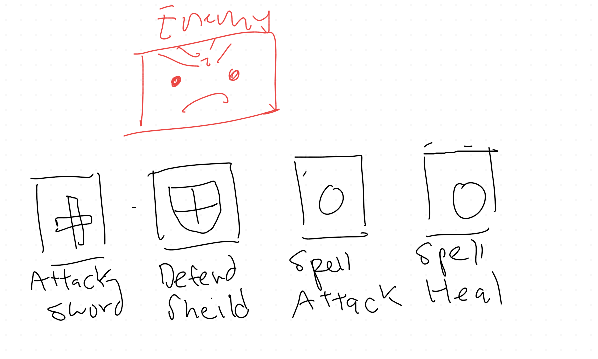 Enemy
Attack
Sword
Defend
Sheild
Spell
Attack
Spell
Heal